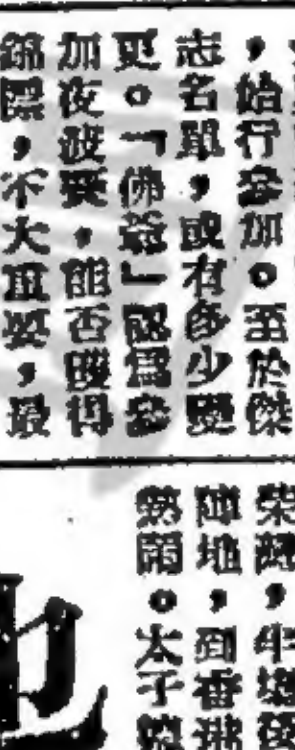 ，始行參加。至於傑
志名單，或有多少變
更。「佛爺」認爲參
加夜波賽，能否獲得
錦標，不大重要，最
榮
陣地，到香港
無關。太子
也